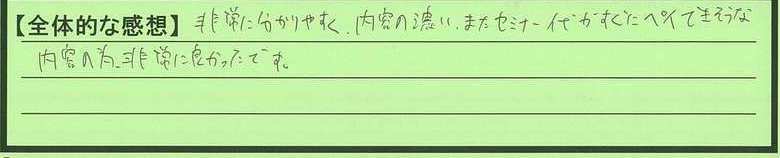 【全体的な感想】非常に分かりやすく、内容の濃い、またセミナー代がすぐにペイできそうな
内容の為、非常に良かったです。